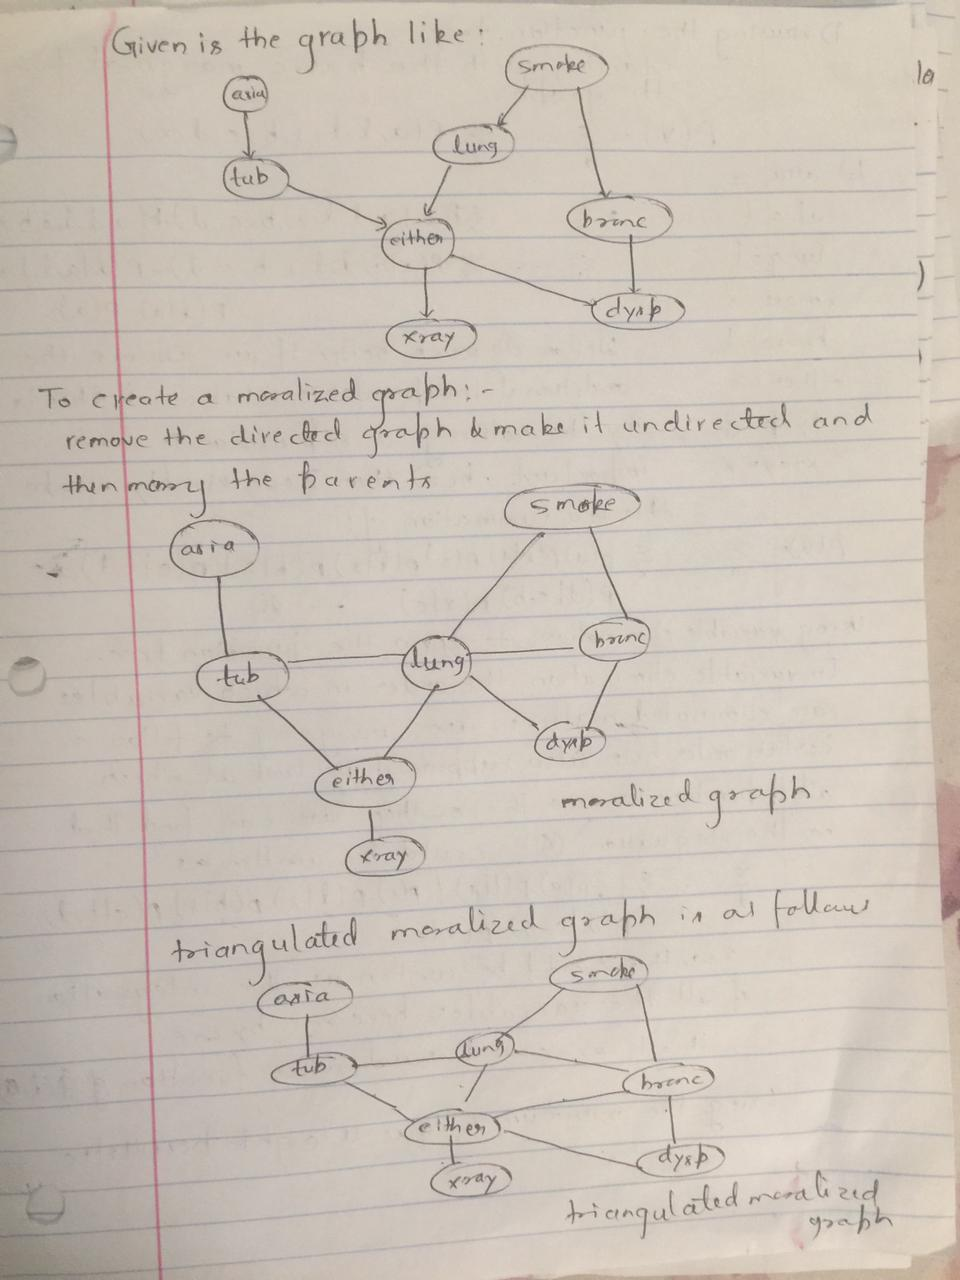 Given is the graph like:
smoke
asia
lung
tub
bronc
either
dysp
xray
To create a moralized graph:-
remove the directed graph & make it undirected and
then marry the parents
smoke
asia
bronc
lung
tub
dysp
either
moralized graph.
xray
triangulated moralized graph is as follows
smoke
asia
lung
tub
bronc
either
dysp
xray
triangulated moralized
graph